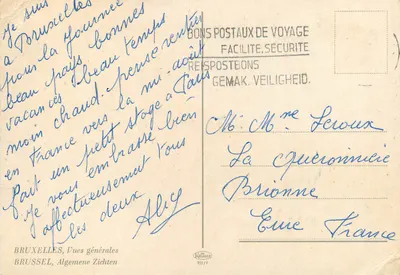 je suis
à Bruxelles
pour la journée
beau pays bonnes
vacances, beau temps
moin chaud. pense rentrer
en France vers la mi-août
fait un petit stage à Paris
je vous embrasse bien
affectueusement tous
les deux
BRUXELLES, Vues générales
BRUSSEL, Algemene Zichten
BONS POSTAUX DE VOYAGE
FACILITE, SECURITE
REISPOSTBONS
GEMAK, VEILIGHEID.
M. Mme Leroux
La
Brionne
Eure France